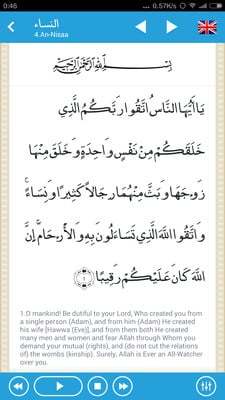 0:46 ... 0.57K/s
النساء
4.An-Nisaa
بِسْمِ اللَّهِ الرَّحْمَنِ الرَّحِيمِ
يَا أَيُّهَا النَّاسُ اتَّقُوا رَبَّكُمُ الَّذِي
خَلَقَكُمْ مِنْ نَفْسٍ وَاحِدَةٍ وَخَلَقَ مِنْهَا
زَوْجَهَا وَبَثَّ مِنْهُمَا رِجَالًا كَثِيرًا وَنِسَاءً ۚ
وَاتَّقُوا اللَّهَ الَّذِي تَسَاءَلُونَ بِهِ وَالْأَرْحَامَ ۚ إِنَّ
اللَّهَ كَانَ عَلَيْكُمْ رَقِيبًا ﴿١﴾
1.O mankind! Be dutiful to your Lord, Who created you from
a single person (Adam), and from him (Adam) He created
his wife [Hawwa (Eve)], and from them both He created
many men and women and fear Allah through Whom you
demand your mutual (rights), and (do not cut the relations
of) the wombs (kinship). Surely, Allah is Ever an All-Watcher
over you.